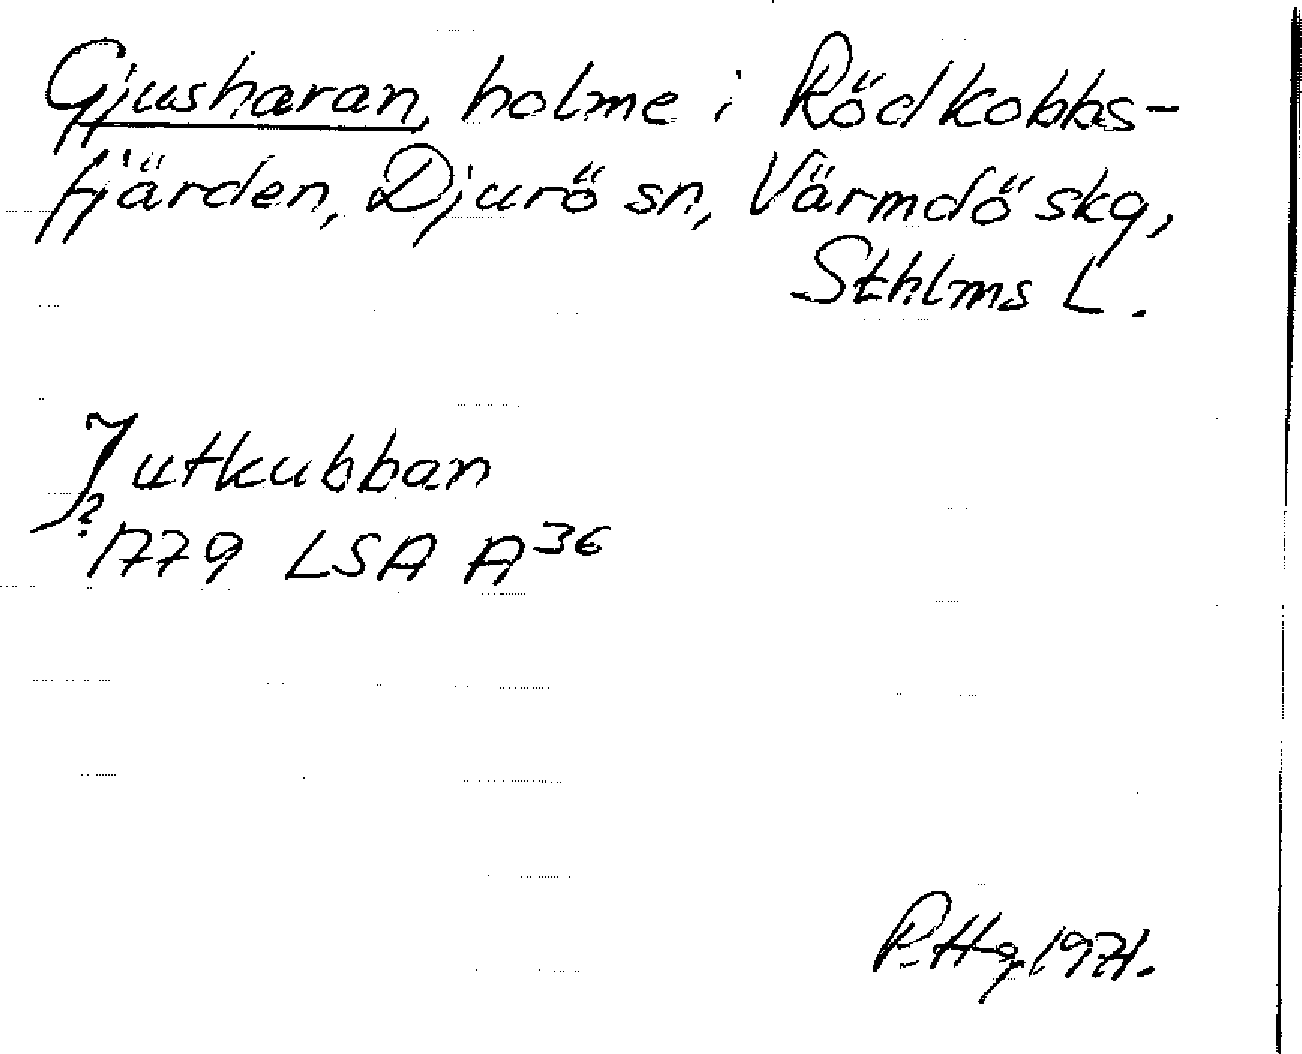 Gjusharan, holme i Rödkobbs-
fjärden, Djurö sn, Värmdö skg,
Sthlms L.
Jutkubban
?
1779 LSA A36
P.Hg. 1971.